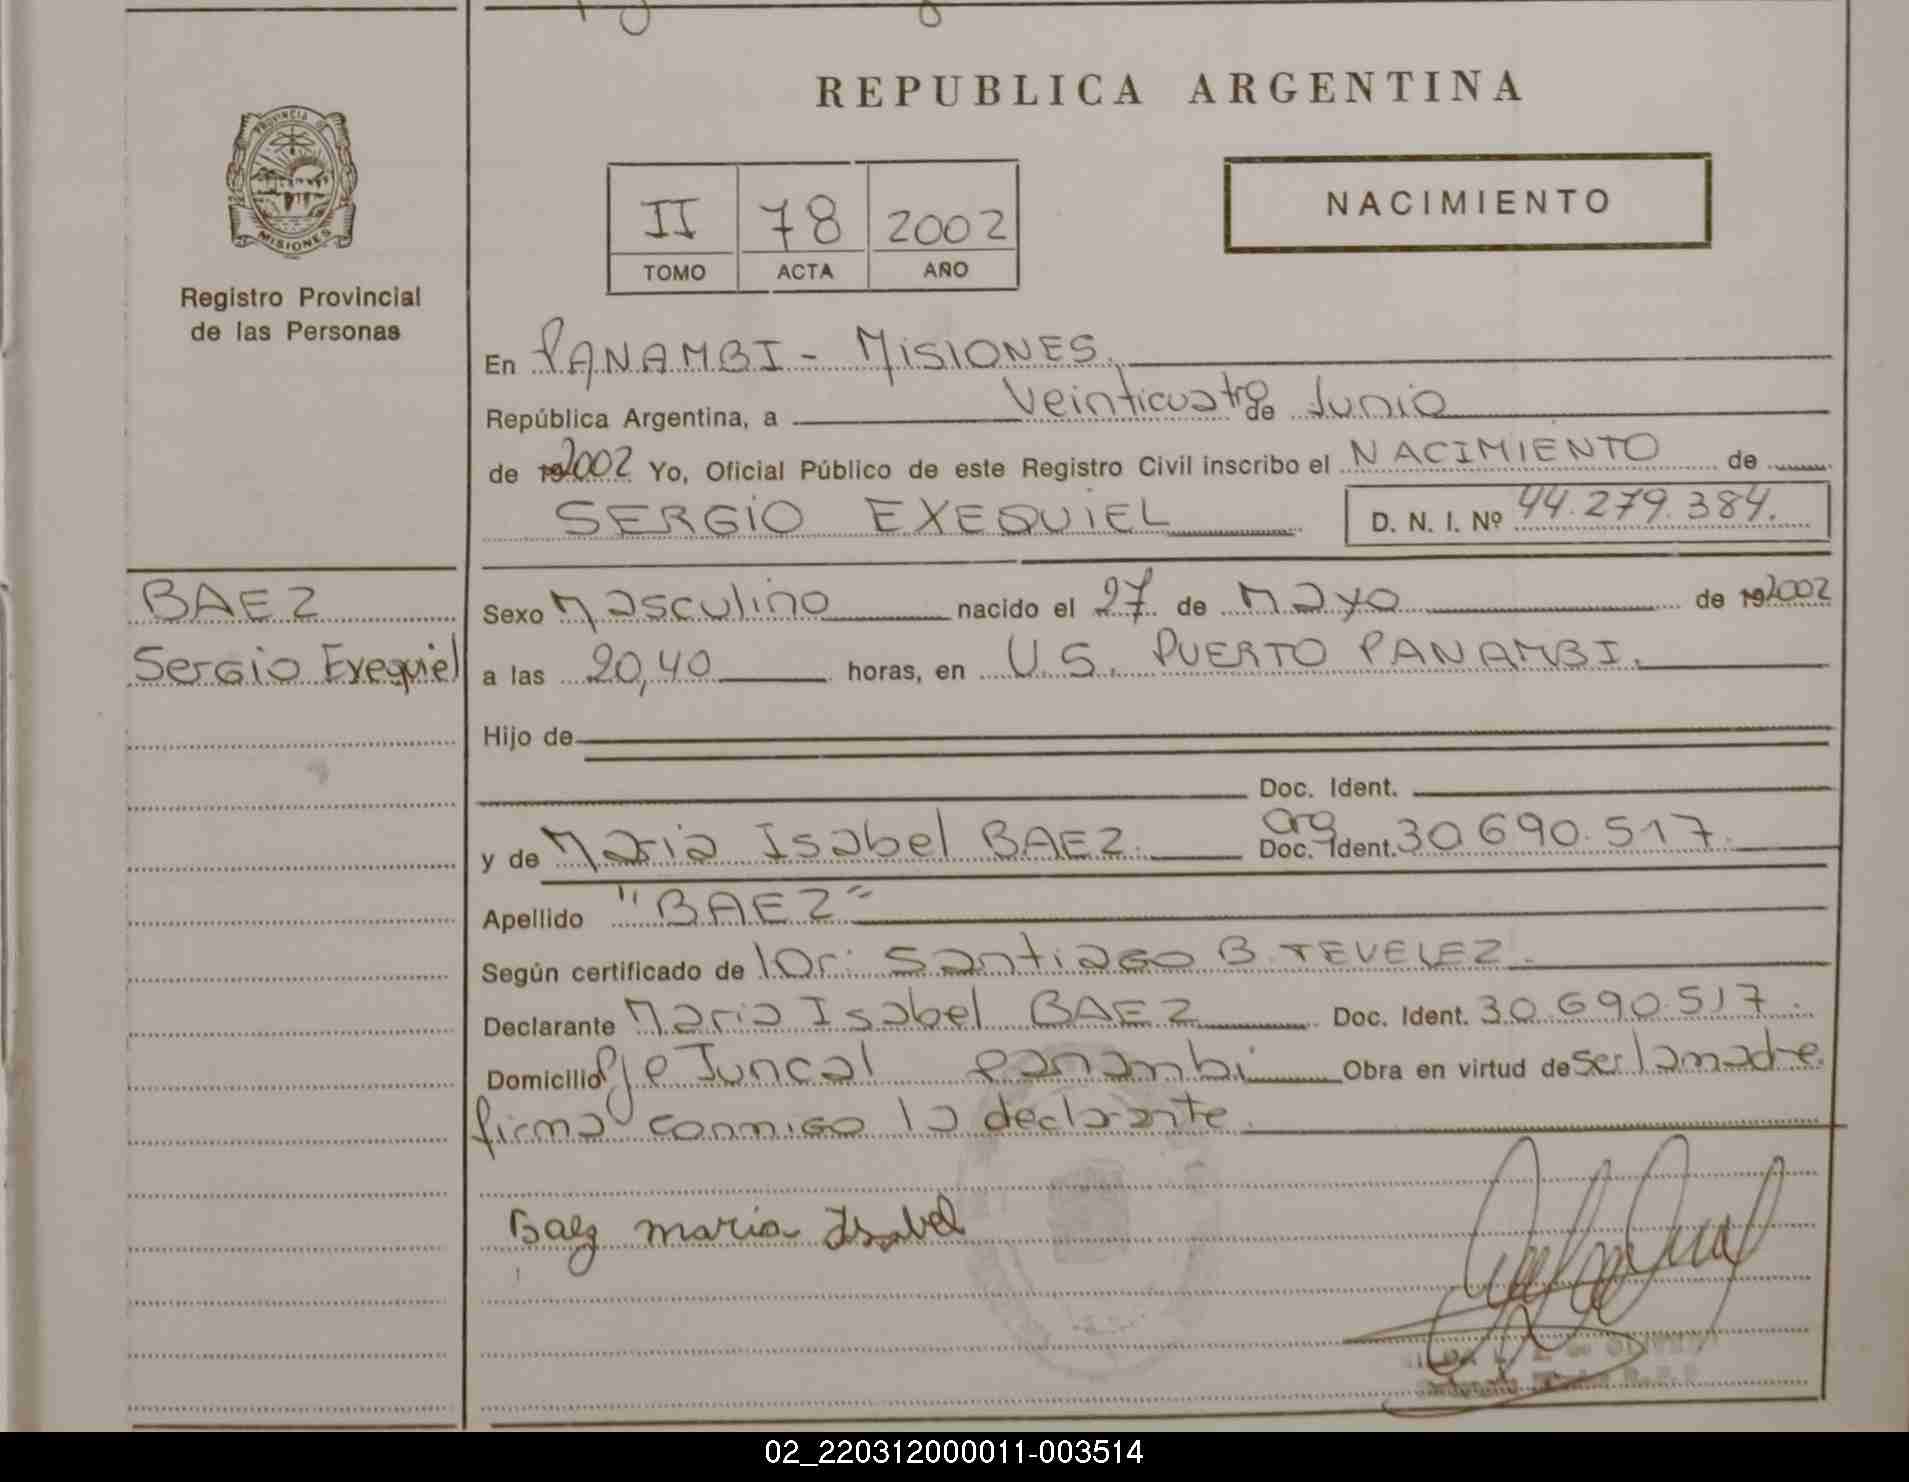 REPUBLICA ARGENTINA
PROVINCIA DE
MISIONES
Registro Provincial
de las Personas
II 78 2002
TOMO ACTA AÑO
NACIMIENTO
En PANAMBI - MISIONES.
República Argentina, a veinticuatro de Junio
de 192002 Yo, Oficial Público de este Registro Civil inscribo el NACIMIENTO de
SERGIO EXEQUIEL D. N. I. Nº 44.279.384.
BAEZ
Sergio Exequiel
Sexo Masculino nacido el 27 de Mayo de 192002
a las 20,40 horas, en U.S. PUERTO PANAMBI.
Hijo de
Doc. Ident.
y de Maria Isabel BAEZ. Arg Doc. Ident. 30 690.517.
Apellido "BAEZ"
Según certificado de Dr: Santiago B. TEVELEZ.
Declarante Maria Isabel BAEZ Doc. Ident. 30.690.517.
Domicilio Pje Juncal Panambi Obra en virtud de ser la madre
firma conmigo la declarante.
Baez maria Isabel
02_220312000011-003514